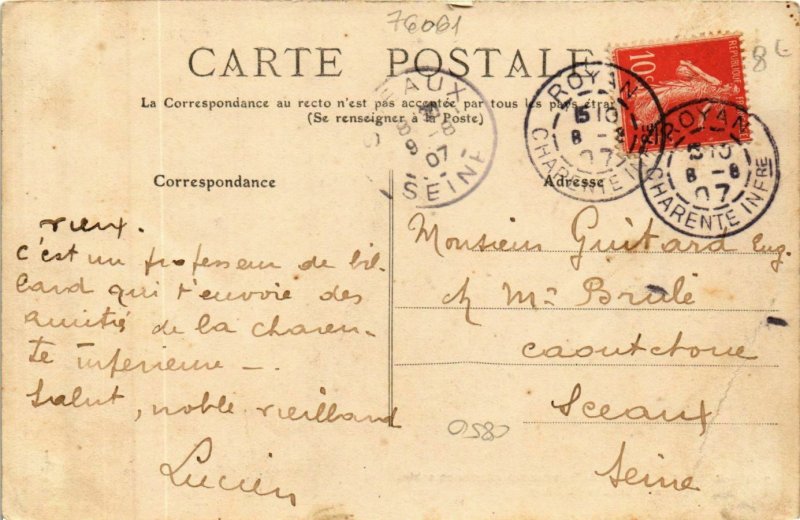 76061
86
CARTE POSTALE
La Correspondance au recto n'est pas acceptée par tous les pays étran
(Se renseigner à la Poste)
SCEAUX
8 - 8
9 07
SEINE
ROYAN
5 10
8 - 8
07
CHARENTE INFRE
ROYAN
5 10
8 - 8
07
CHARENTE INFRE
10c
REPUBLIQUE
Correspondance
vieux.
C'est un professeur de bil-
lard qui t'envoie des
amitiés de la Charen-
te inferieure -.
Salut, noble vieillard
Lucien
Adresse
Monsieur Guitard Eug.
ch Mr Brulé
caoutchouc
Sceaux
Seine
0580